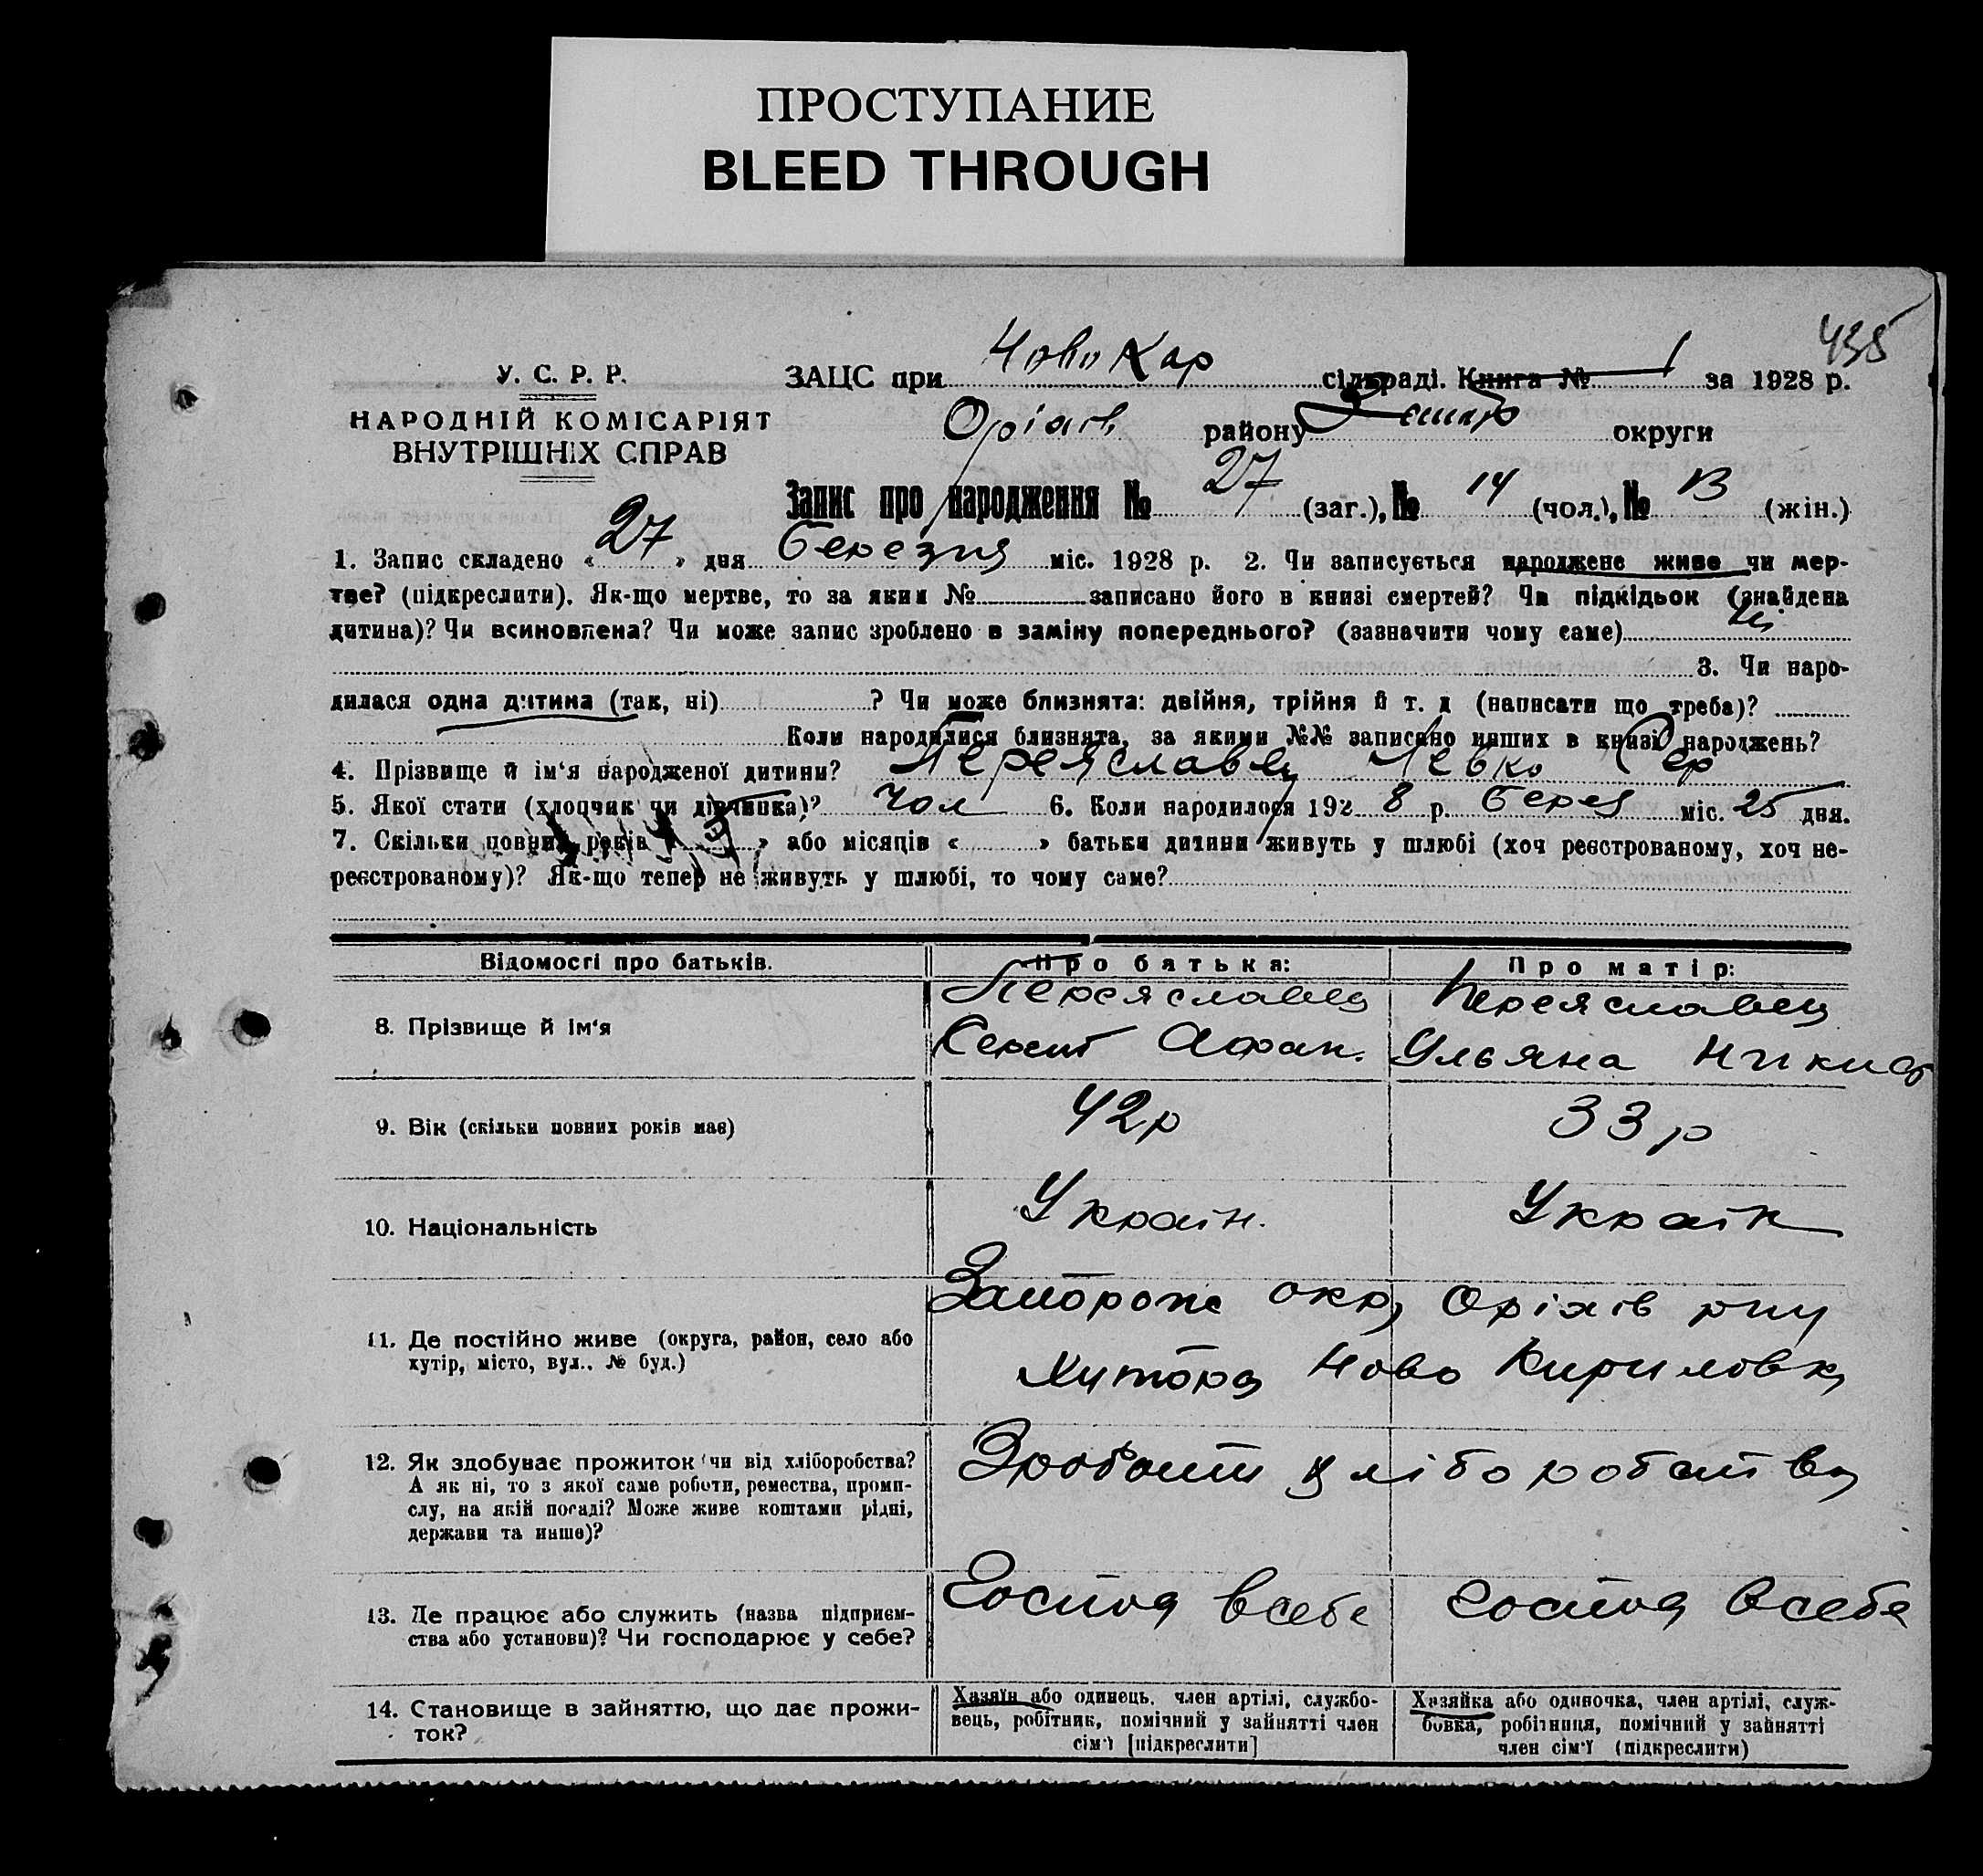 ПРОСТУПАНИЕ
BLEED THROUGH
435
У. С. Р. Р.
НАРОДНІЙ КОМІСАРІЯТ
ВНУТРІШНІХ СПРАВ
ЗАЦС при Ново Кар сільраді. Книга № 1 за 1928 р.
Оріхів району округи
Запис про народження № 27 (заг.), № 14 (чол.), № 13 (жін.)
1. Запис складено «27» дня Березня міс. 1928 р. 2. Чи записується народжене живе чи мер-
тве? (підкреслити). Як-що мертве, то за яким № записано його в книзі смертей? Чи підкідьок (знайдена
дитина)? Чи всиновлена? Чи може запис зроблено в заміну попереднього? (зазначити чому саме) Ні
3. Чи наро-
дилася одна дитина (так, ні) ? Чи може близнята: двійня, трійня й т. д (написати що треба)?
Коли народилися близнята, за якими №№ записано инших в книзі народжень?
4. Прізвище й ім‘я народженої дитини? Переяславец Левко Сер
5. Якої стати (хлопчик чи дівчинка)? Чол 6. Коли народилося 192 8 р. Берез міс. 25 дня.
7. Скільки повних років « » або місяців « » батьки дитини живуть у шлюбі (хоч реєстрованому, хоч не-
реєстрованому)? Як-що тепер не живуть у шлюбі, то чому саме?
Відомості про батьків. Про батька: Про матір:
8. Прізвище й ім‘я
Переяславец Афан.
Переяславец Ульяна Никиф
9. Вік (скільки повних років має) 42р 33р
10. Національність Україн. Україн
11. Де постійно живе (округа, район, село або
хутір, місто, вул., № буд.)
Запороже окр, Оріхів рну
Хутора Ново Кириловка
12. Як здобуває прожиток (чи від хліборобства?
А як ні, то з якої саме роботи, ремества, проми-
слу, на якій посаді? Може живе коштами рідні,
держави та инше)?
хліборобства
13. Де працює або служить (назва підприєм-
ства або установи)? Чи господарює у себе?
Господ всебе господ всебе
14. Становище в зайняттю, що дає прожи-
ток?
Хазяїн або одинець, член артілі, службо-
вець, робітник, помічний у зайнятті член
сім‘ї [підкреслити]
Хазяйка або одиночка, член артілі, служ-
бовка, робітниця, помічний у зайнятті
член сім‘ї (підкреслити)